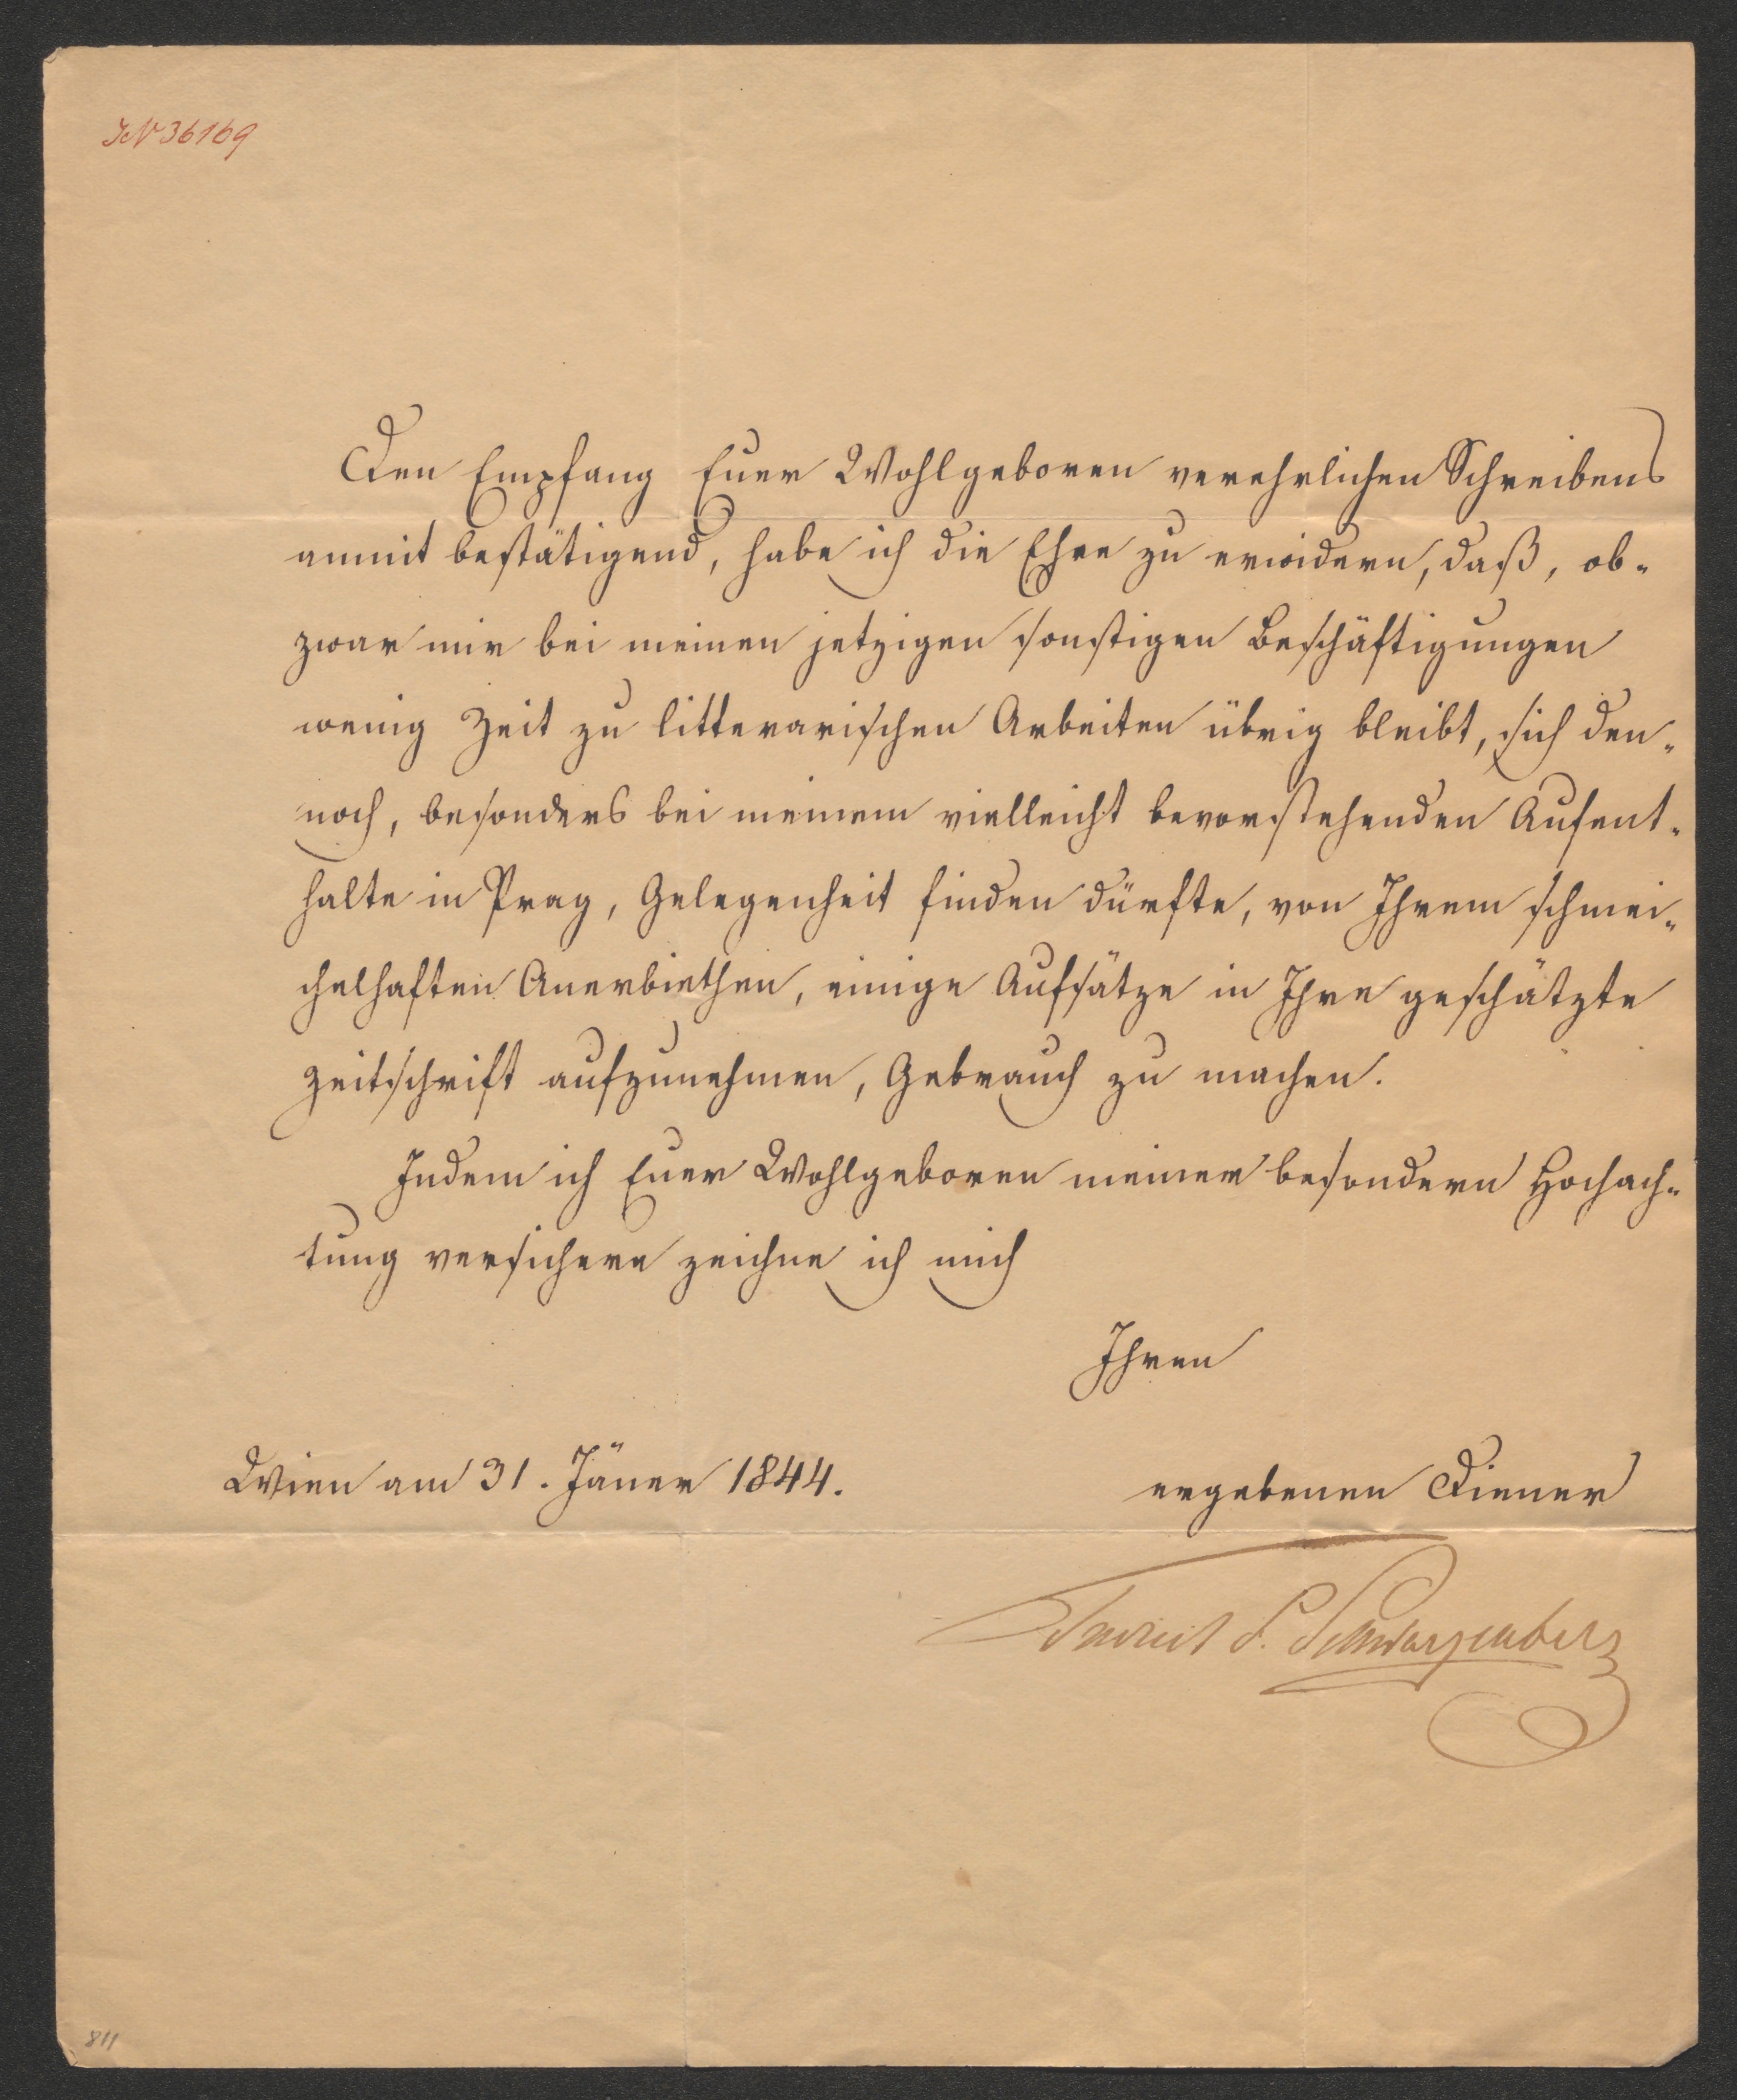 IN 36169
Den Empfang Euer Wohlgeboren verehrlichen Schreibens
anmit bestätigend, habe ich die Ehre zu erwidern, daß, ob-
zwar mir bei meinen jetzigen sonstigen Beschäftigungen
wenig Zeit zu litterarischen Arbeiten übrig bleibt, sich den-
noch, besonders bei meinem vielleicht bevorstehenden Aufent-
halte in Prag, Gelegenheit finden dürfte, von Ihrem schmei-
chelhaften Anerbiethen, einige Aufsätze in Ihre geschätzte
Zeitschrift aufzunehmen, Gebrauch zu machen.
Indem ich Euer Wohlgeboren meiner besondern Hochach-
tung versichere zeichne ich mich
Ihren
Wien am 31. Jäner 1844.
ergebenen Diener
Schwarzenberg
811